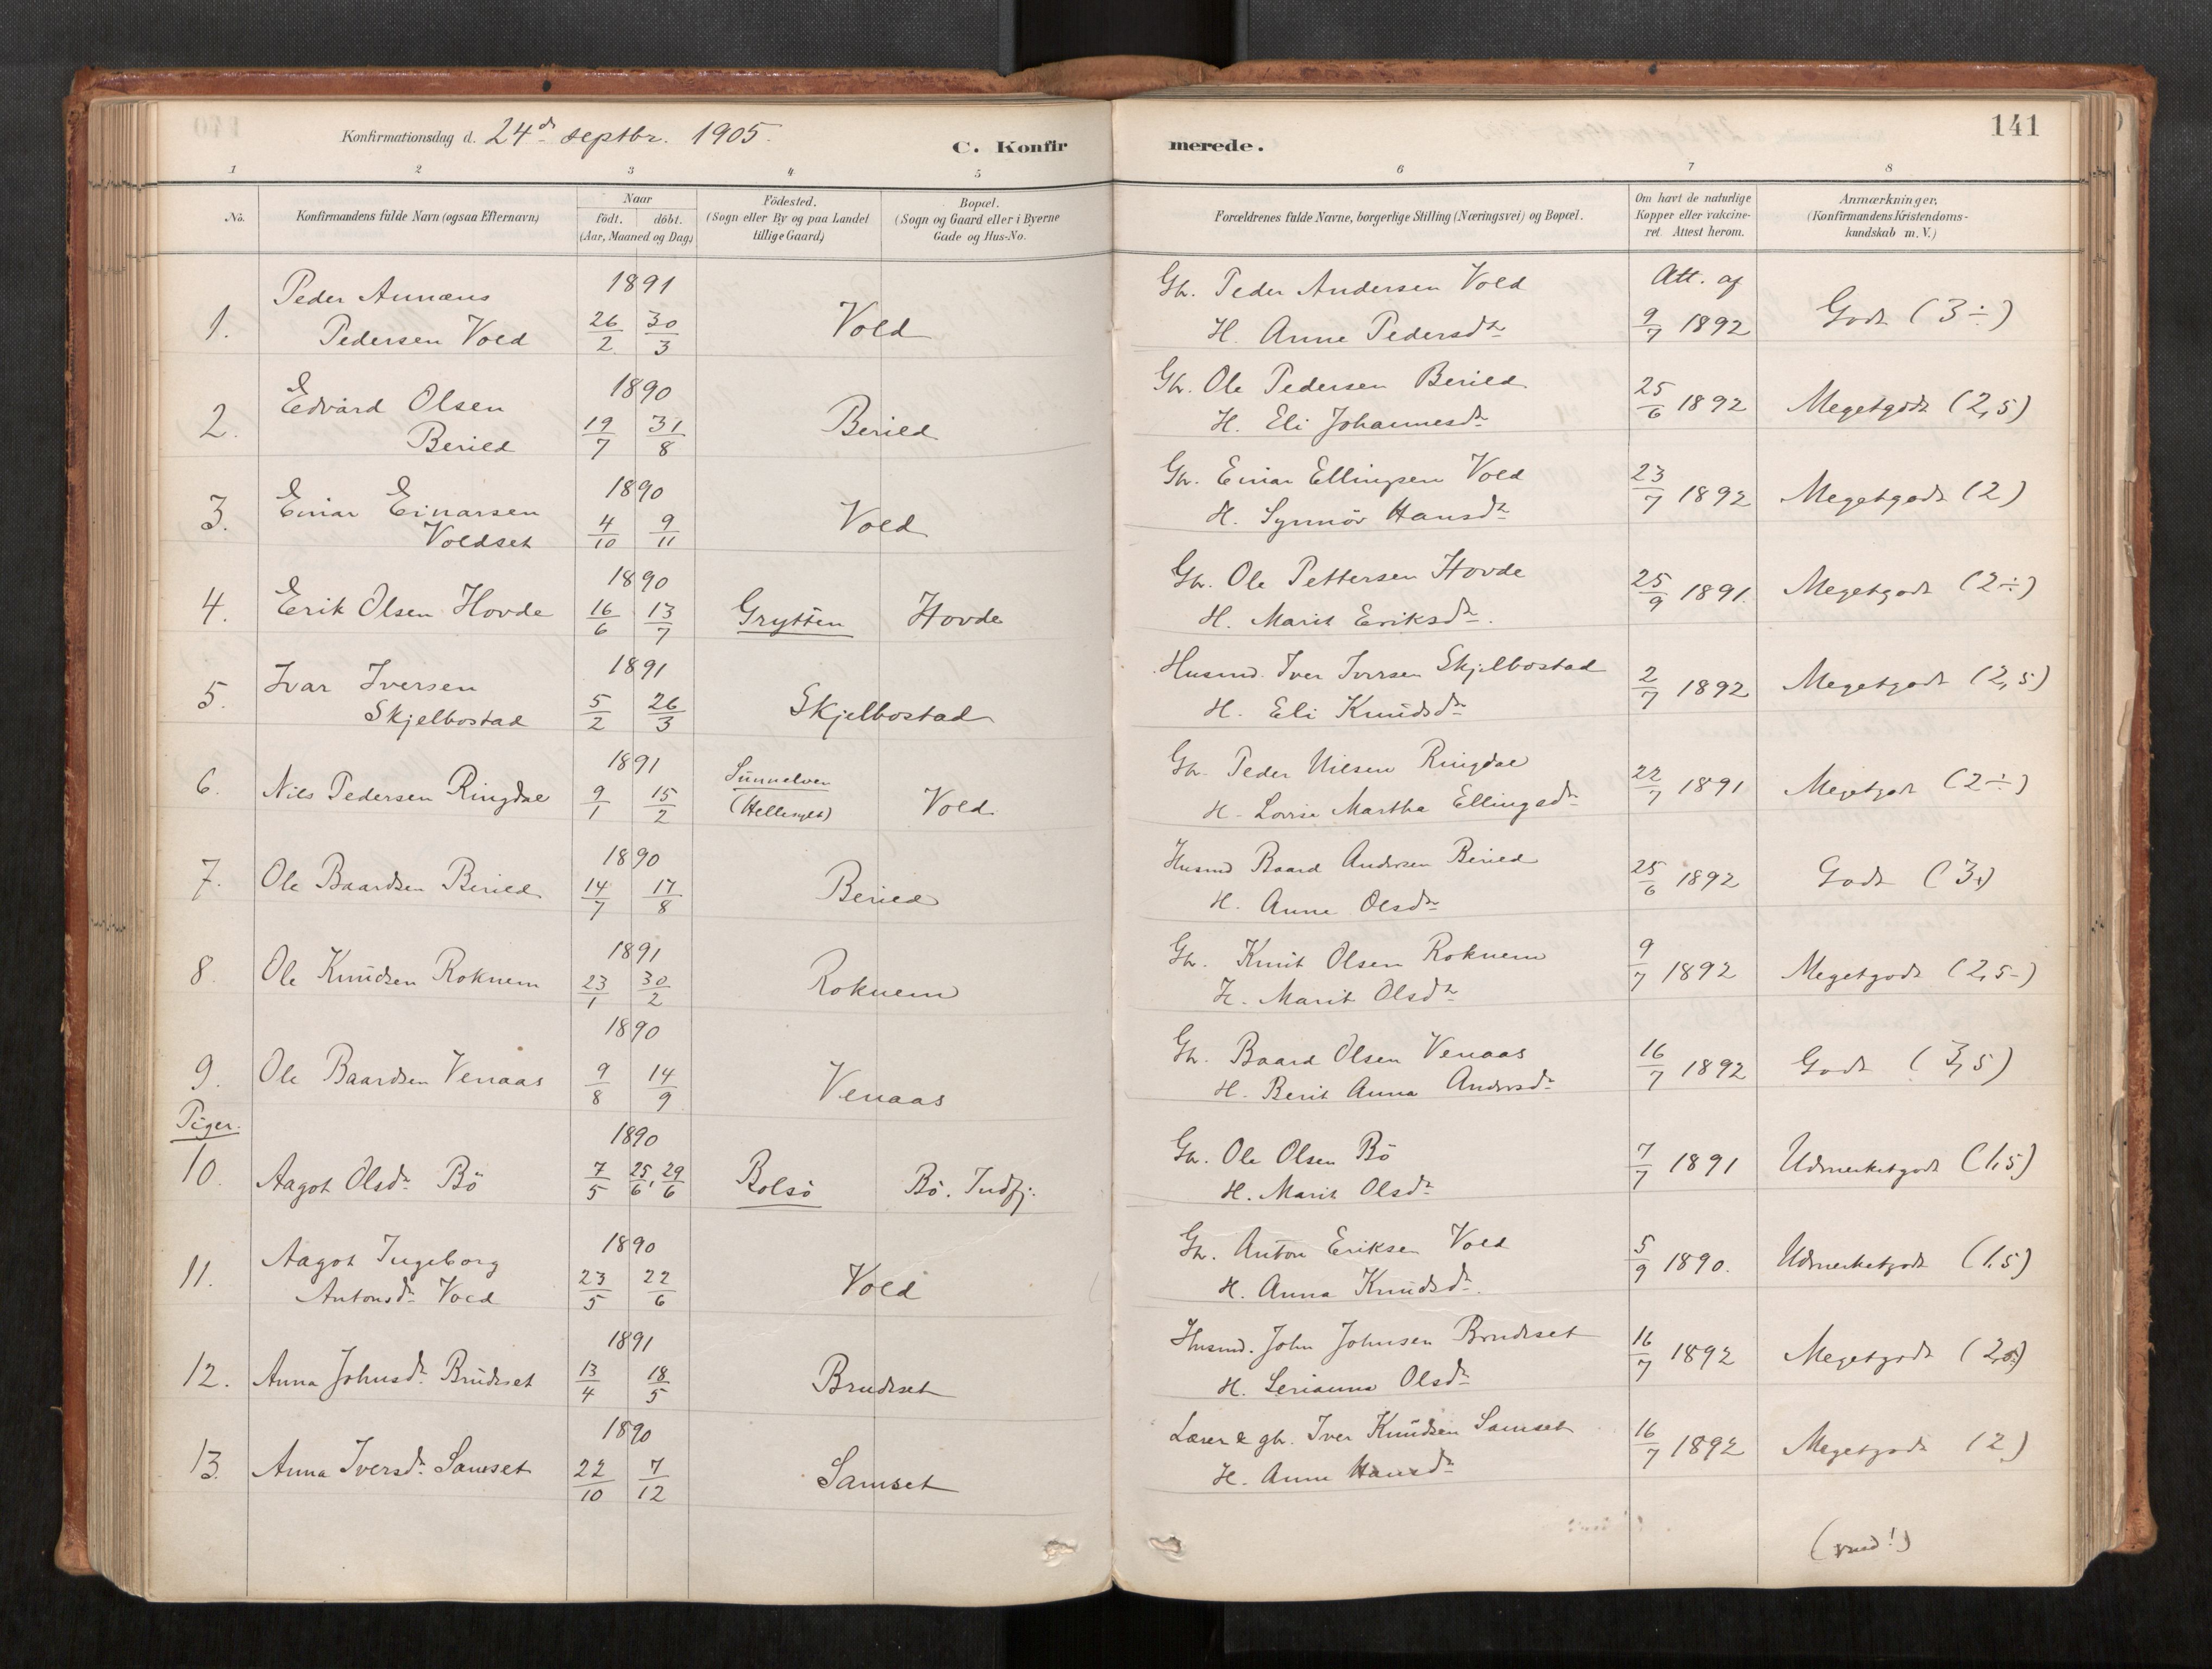 Konfirmationsdag d. 24de septbr. 1905.
C. Konfirmerede.
141
1 2 3 4 5 6 7 8
No.
Konfirmandens fulde Navn (ogsaa Efternavn)
Naar
födt. döbt.
(Aar, Maaned og Dag)
Födested.
(Sogn eller By og paa Landet
tillige Gaard)
Bopæl.
(Sogn og Gaard eller i Byerne
Gade og Hus-No.
Forældrenes fulde Navne, borgerlige Stilling (Næringsvei) og Bopæl.
Om havt de naturlige
Kopper eller vakcine-
ret. Attest herom.
Anmærkninger.
(Konfirmandens Kristendoms-
kundskab m. V.)
1. Peder Annæus
Pedersen Vold
1891
26/2 30/3
Vold
Gb. Peder Andersen Vold
H. Anne Pedersdr
Att. af
9/7 1892
Godt (3÷)
2. Edvard Olsen
Berild
1890
19/7 31/8
Berild
Gb. Ole Pedersen Berild
H. Eli Johannesdr
25/6 1892
Megetgodt (2,5)
3. Einar Einarsen
Voldset
1890
4/10 9/11
Vold
Gb. Einar Ellingsen Vold
H. Synnöv Hansdr
23/7 1892
Megetgodt (2)
4. Erik Olsen Hovde
1890
16/6 13/7
Grytten
Hovde
Gb. Ole Pettersen Hovde
H. Marit Eriksdr.
25/9 1891.
Megetgodt (2÷)
5. Ivar Iversen
Skjelbostad
1891
5/2 26/3
Skjelbostad
Husmd. Iver Iversen Skjelbostad
H. Eli Knudsdr
2/7 1892
Megetgodt (2,5)
6. Nils Pedersen Ringdal
1891
9/1 15/2
Sunnelven
(Hellesylt)
Vold
Gb. Peder Nilsen Ringdal
H. Lovise Martha Ellingsdr
22/7 1891
Megetgodt (2÷)
7. Ole Baardsen Berild
1890
14/7 17/8
Berild
Husmd Baard Andersen Berild
H. Anne Olsdr
25/6 1892
Godt (3+)
8. Ole Knudsen Roknem
1891
23/1 30/2
Roknem
Gb. Knut Olsen Roknem
H. Marit Olsdr
9/7 1892
Megetgodt (2,5-)
9. Ole Baardsen Venaas
1890
9/8 14/9
Venaas
Gb. Baard Olsen Venaas
H. Berit Anna Andersdr
16/7 1892
Godt (3,5)
Piger.
10. Aagot Olsdr. Bö
1890
7/5 25/6, 29/6
Bolsö
Bö. Indfj.
Gb. Ole Olsen Bö
H. Marit Olsdr
7/7 1891
Udmerketgodt (1,5)
11. Aagot Ingeborg
Antonsdr Vold
1890
23/5 22/6
Vold
Gb. Anton Eriksen Vold
H. Anna Knudsdr.
5/9 1890.
Udmerketgodt (1,5)
12. Anna Johnsdr. Brudeset
1891
13/4 18/5
Brudeset
Husmd. John Johnsen Brudeset
H. Serianna Olsdr
16/7 1892
Megetgodt (2,5)
13. Anna Iversdr. Samset
1890
22/10 7/12
Samset
Lærer & gb. Iver Knudsen Samset
H. Anne Hansdr
16/7 1892
Megetgodt (2)
(vend!)